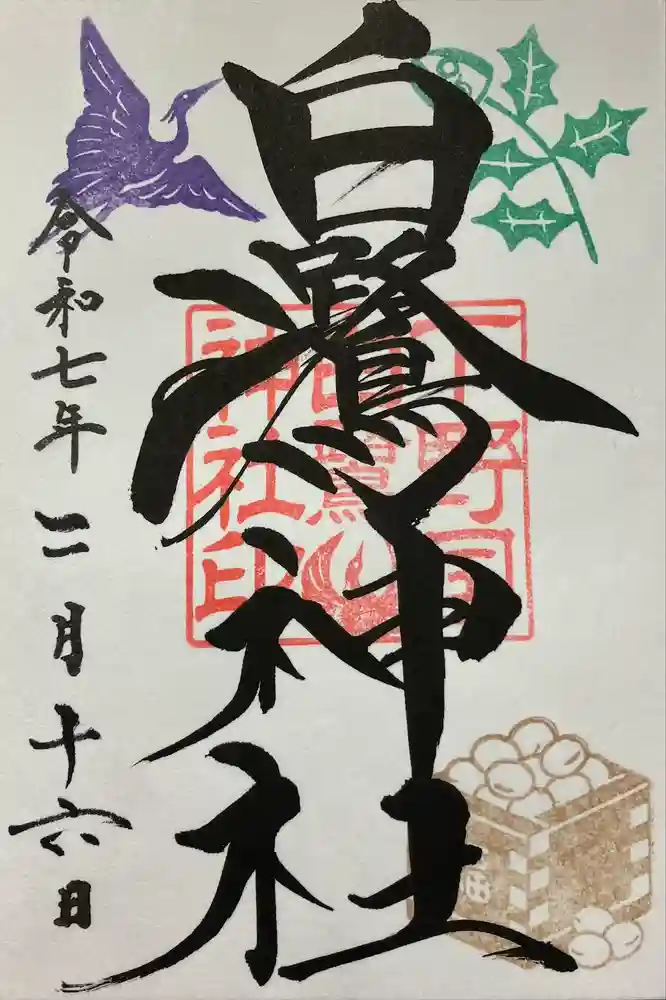 白鷺神社
下野国
白鷺
神社印
令和七年二月十六日